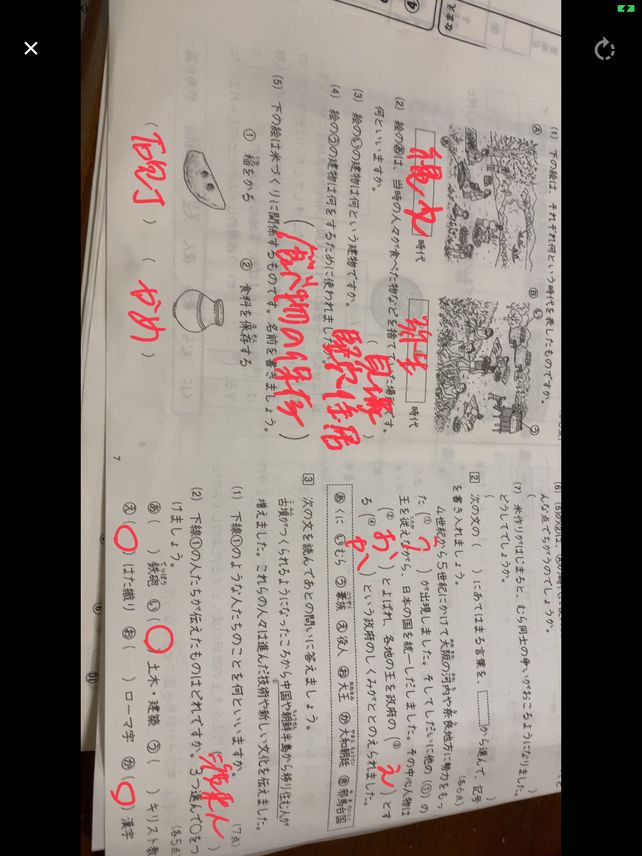 (1) 下の絵は、それぞれ何という時代を表したものですか。
Ⓐ
Ⓑ
縄文 時代
弥生 時代
(2) 絵のあは、当時の人々が食べた物などを捨てていた場所です。
何といいますか。
(貝塚)
(3) 絵のいの建物は何という建物ですか。
竪穴住居
(4) 絵のうの建物は何をするために使われましたか。
(食べ物の保存)
(5) 下の絵は米づくりに関係するものです。名前を書きましょう。
① 稲をかる
② 食料を保存する
(石包丁)
(かめ)
7
(7) 米作りがはじまると、むら同士の争いがおこるようになりました。
どうしてでしょうか。
2 次の文の( )にあてはまる言葉を、 から選んで、記号
を書き入れましょう。 (各6点)
4世紀から5世紀にかけて大阪の河内や奈良地方に勢力をもっ
た(① う )が出現しました。そしてしだいに他の(①)の
王を従えながら、日本の国を統一しだしました。その中心人物は
(② お )とよばれ、各地の王を政府の(③ え )とす
る(④ か )という政府のしくみがととのえられました。
あ くに い むら う 豪族 え 役人 お 大王 か 大和朝廷 き 邪馬台国
3 次の文を読んであとの問いに答えましょう。
古墳がつくられるようになったころから中国や朝鮮半島から移り住む人が
増えました。これらの人々は進んだ技術や新しい文化を伝えました。
(1) 下線①のような人たちのことを何といいますか。 (7点)
(2) 下線①の人たちが伝えたものはどれですか。3つ選んで○をつ
けましょう。 (各5点
あ( ) 鉄砲 い(○) 土木・建築 う( ) キリスト教
え(○) はた織り お( ) ローマ字 か(○) 漢字